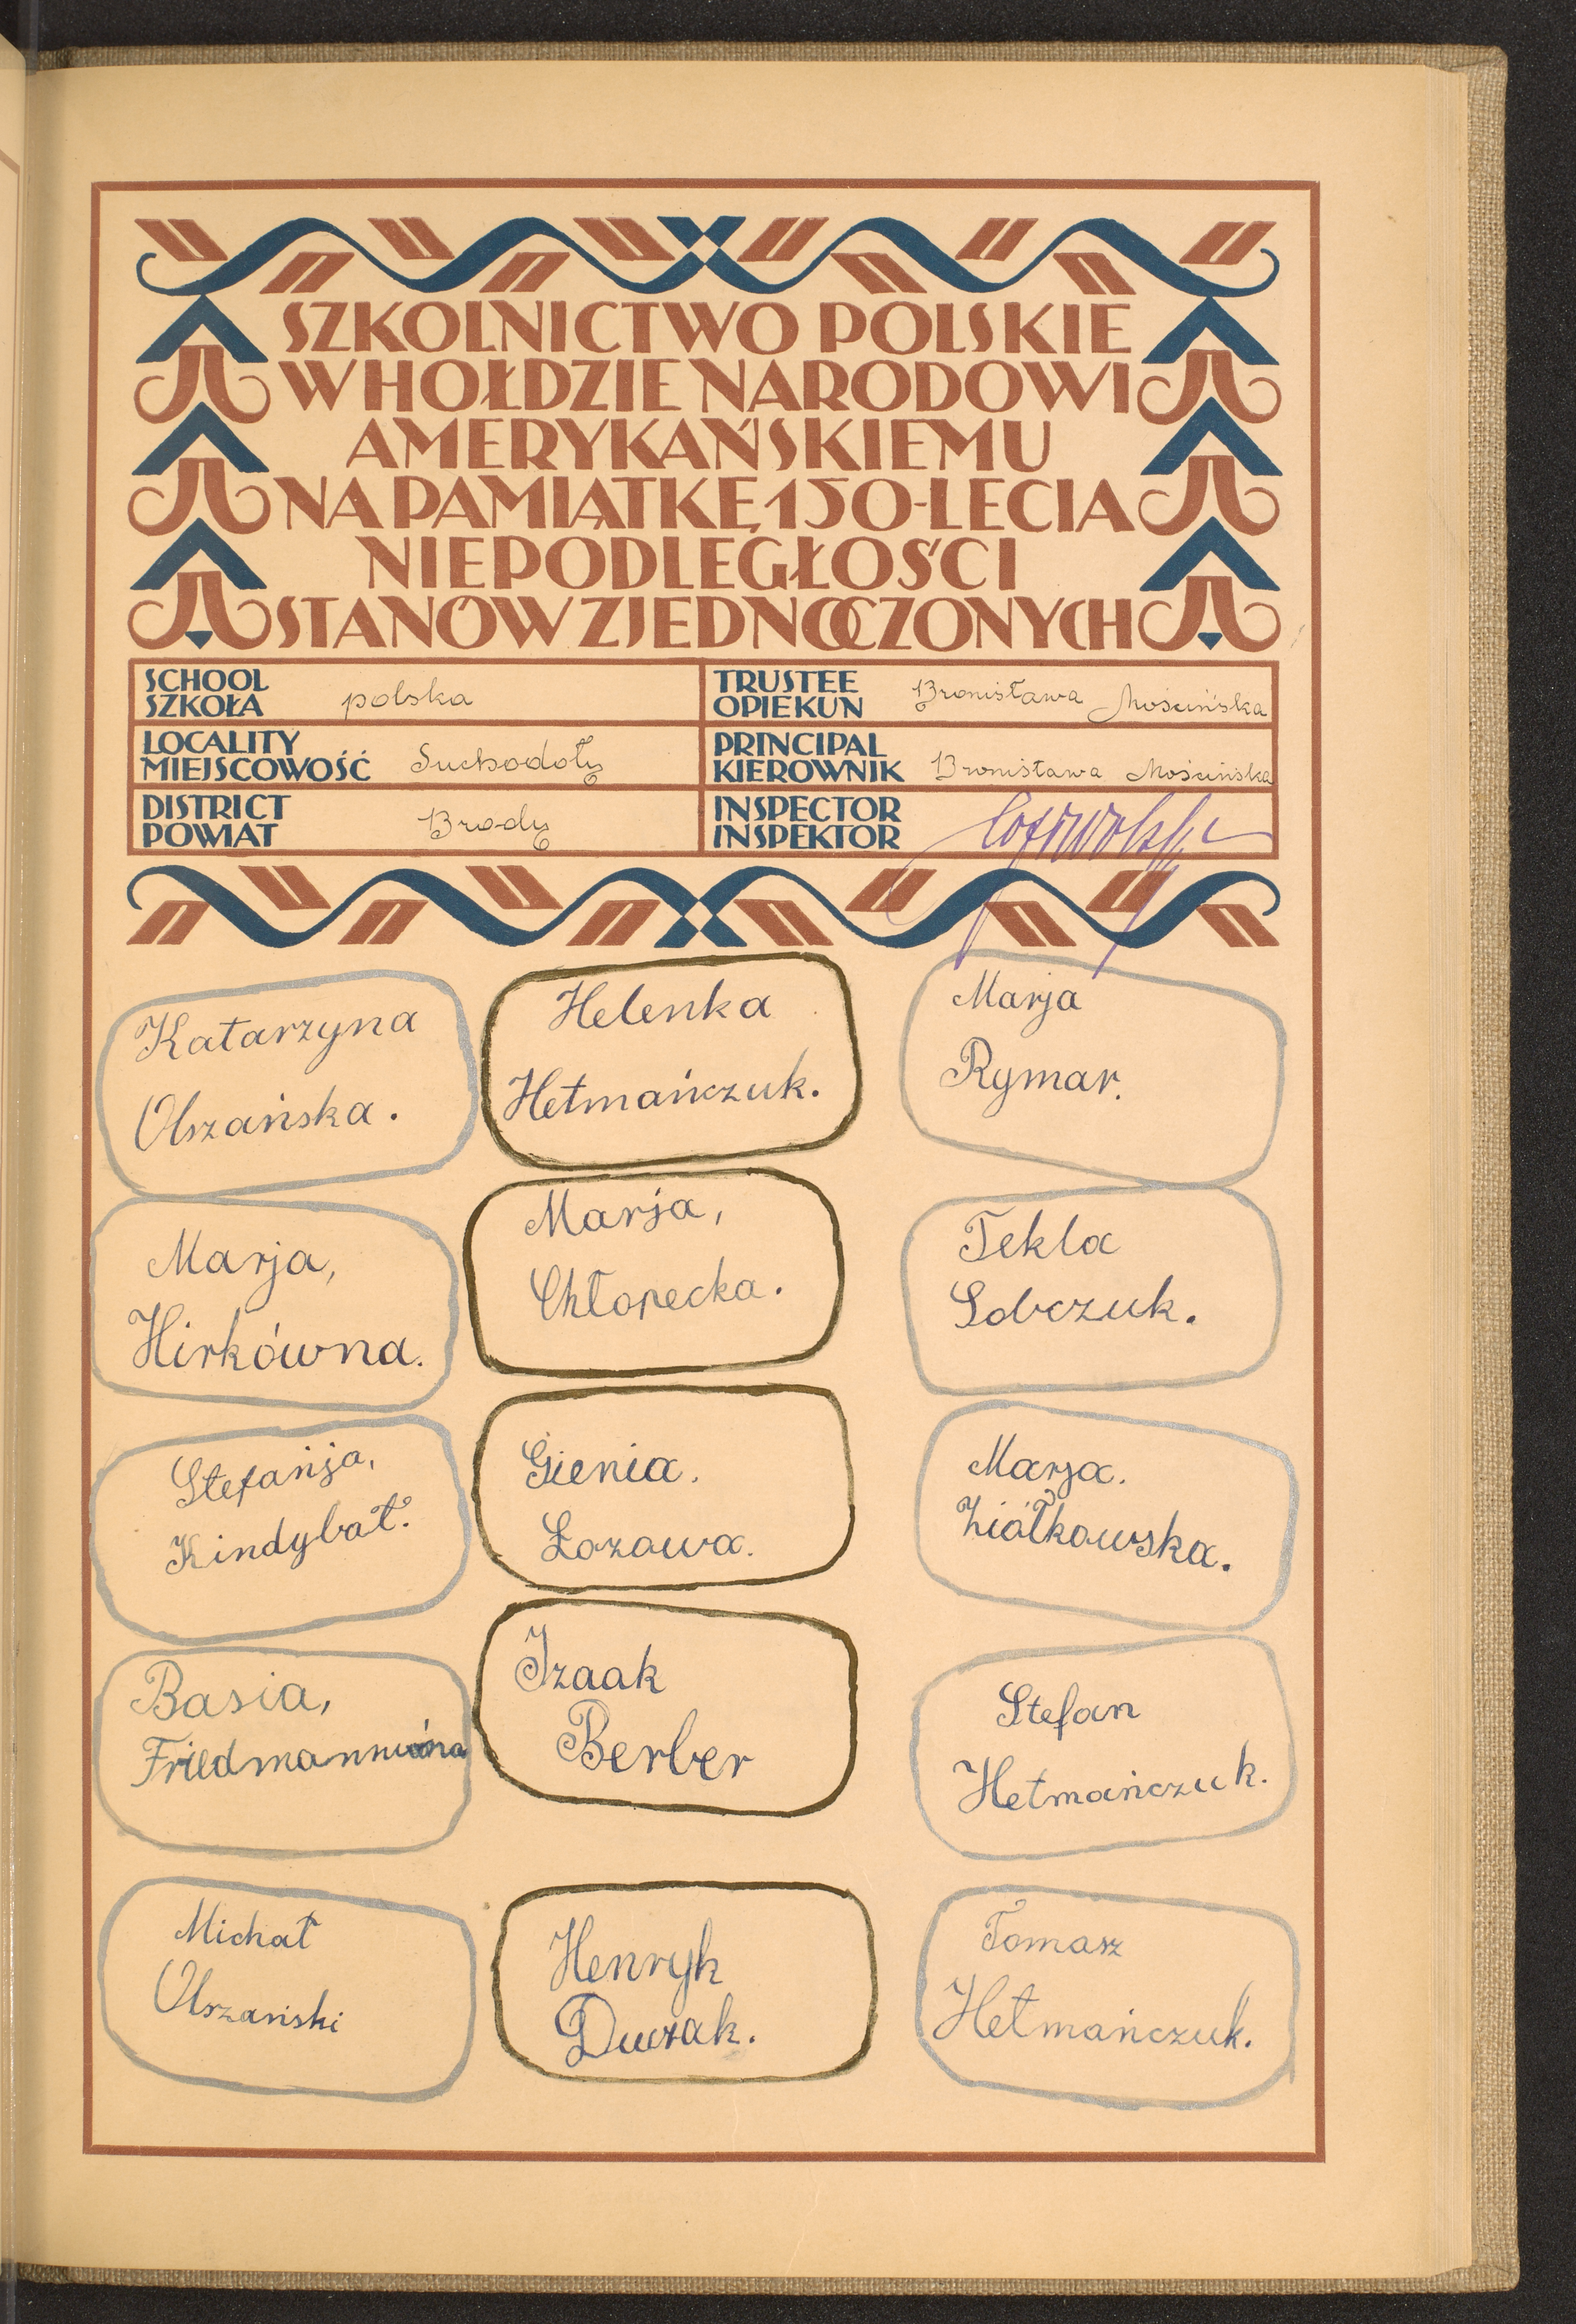 SZKOLNICTWO POLSKIE
W HOŁDZIE NARODOWI
AMERYKAŃSKIEMU
NA PAMIĄTKĘ 150-LECIA
NIEPODLEGŁOŚCI
STANÓW ZJEDNOCZONYCH
SCHOOL
SZKOŁA polska
TRUSTEE
OPIEKUN Bronisława Mościńska
LOCALITY
MIEJSCOWOŚĆ Suchodoły
PRINCIPAL
KIEROWNIK Bronisława Mościńska
DISTRICT
POWIAT Brody
INSPECTOR
INSPEKTOR
Katarzyna
Olszańska.
Helenka
Hetmańczuk.
Marja
Rymar.
Marja,
Hirkówna.
Marja,
Chłopecka.
Tekla
Sobczuk.
Stefanja,
Kindybał.
Gienia.
Łozowa.
Marja.
Ziółkowska.
Basia,
Friedmannówna
Izaak
Berber
Stefan
Hetmańczuk.
Michał
Olszański
Henryk
Duczak.
Tomasz
Hetmańczuk.